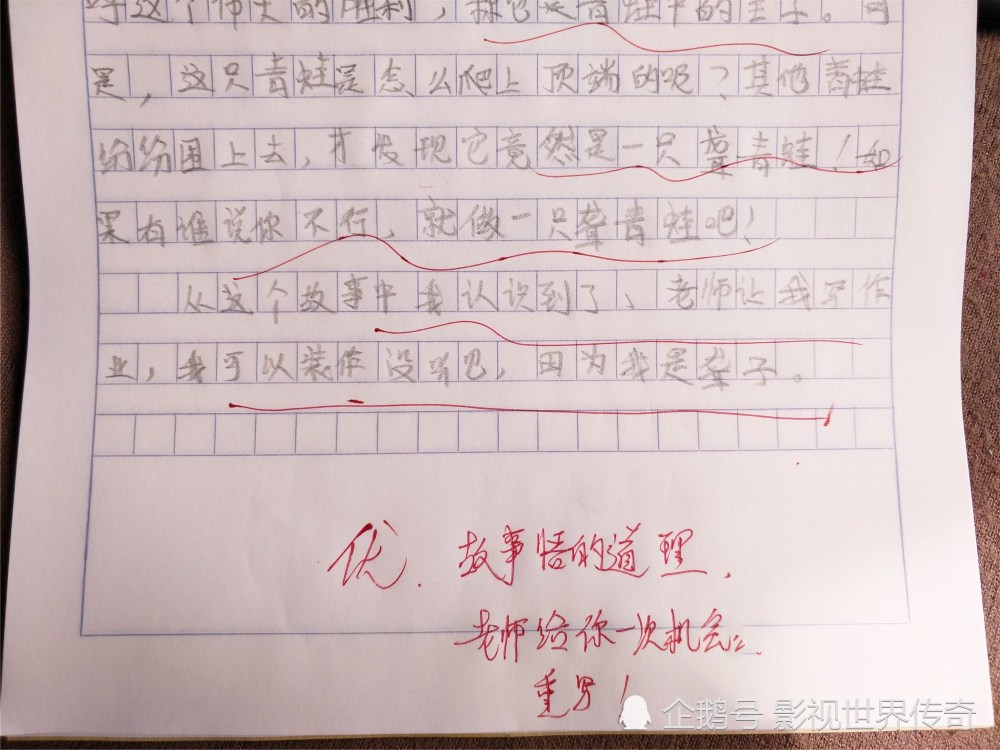 呼这个伟大的胜利，称它是青蛙中的王子。可
是，这只青蛙是怎么爬上顶端的呢？其他青蛙
纷纷围上去，才发现它竟然是一只聋青蛙！如
果有谁说你不行，就做一只聋青蛙吧！
从这个故事中我认识到了、老师让我写作
业，我可以装作没听见，因为我是聋子。
优.故事悟的道理.
老师给你一次机会.
重写！
企鹅号 影视世界传奇